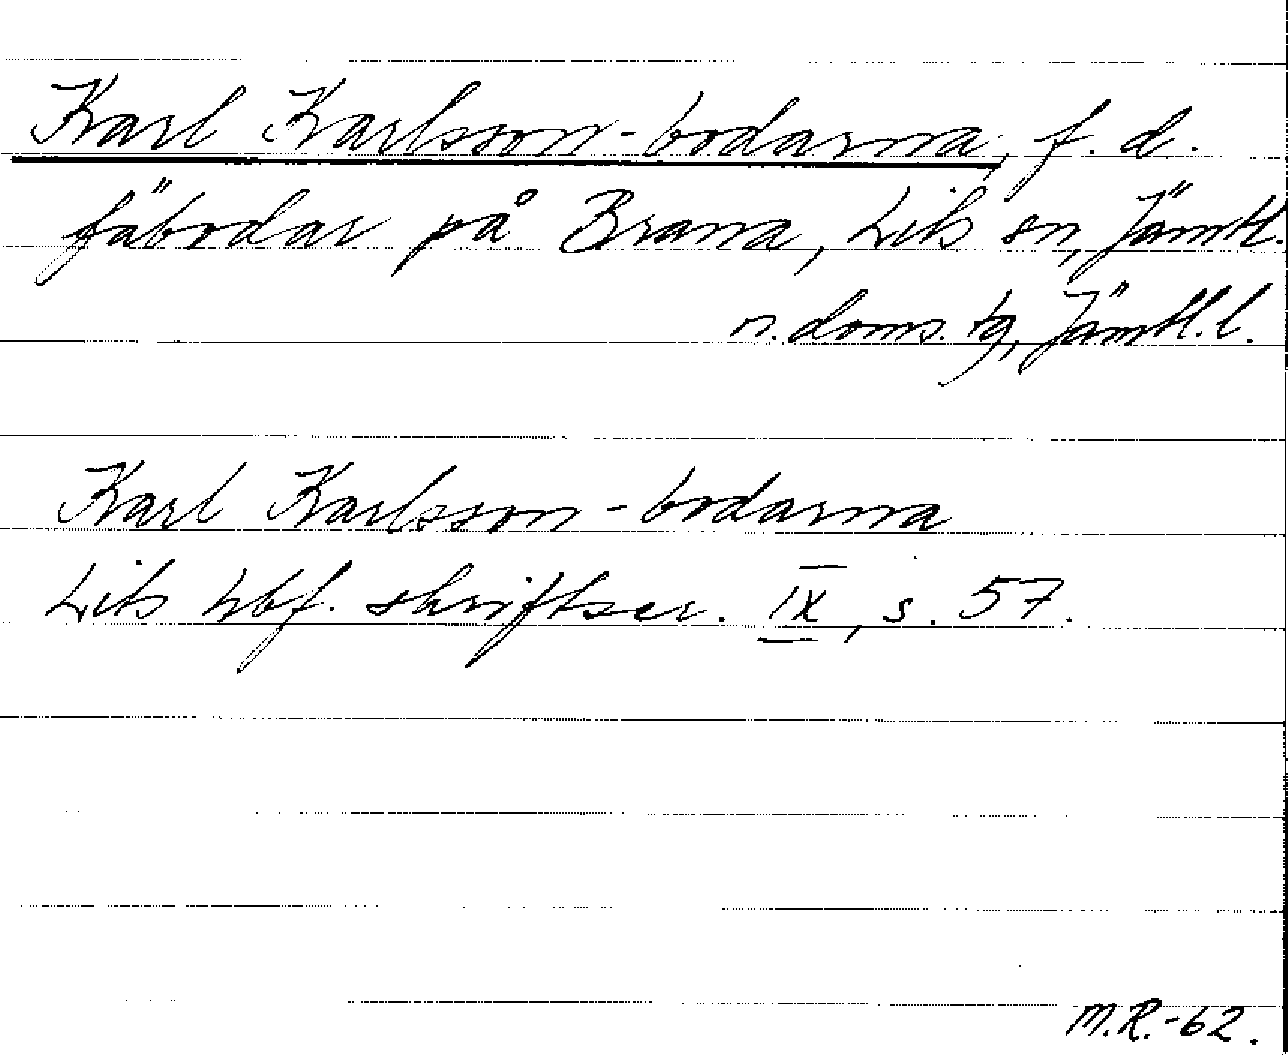 Karl Karlsson-bodarna, f. d.
fäbodar på Brana, Lits sn, Jämtl.
n. doms. tg, Jämtl. l.
Karl Karlsson-bodarna
Lits hbf. skriftser. IX, s. 57.
M.R.-62.